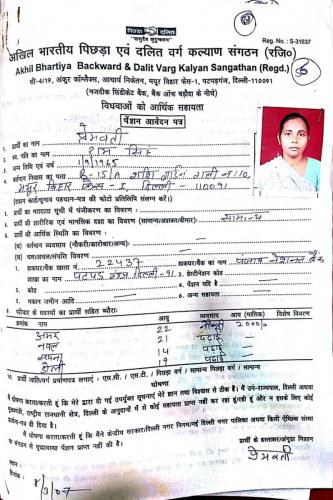 पिछड़ा दलित
Reg. No.: S-31637
अखिल भारतीय पिछड़ा एवं दलित वर्ग कल्याण संगठन (रजि०)
Akhil Bhartiya Backward & Dalit Varg Kalyan Sangathan (Regd.)
सी-4/19, अंकुर कॉम्प्लैक्स, आचार्य निकेतन, मयूर विहार फेस-1, पटपड़गंज, दिल्ली-110091
(नजदीक सिंडीकेट बैंक, बैंक ऑफ बड़ौदा के नीचे)
विधवाओं को आर्थिक सहायता
पेंशन आवेदन पत्र
1. प्रार्थी का नाम प्रेमवती
2. स्व. पति का नाम राम सिंह
3. जन्म तिथि एवं वर्ष 1/9/1965
4. वर्तमान निवास का पता E-15/A शशि गार्डन गली न० 10,
मयूर विहार फेस-I, दिल्ली-110091
(राशन कार्ड/चुनाव पहचान-पत्र की फोटो प्रतिलिपि संलग्न करें।)
5. प्रार्थी का मतदाता सूची में पंजीकरण का विवरण
6. प्रार्थी की शारीरिक एवं मानसिक दशा का विवरण (सामान्य/अशक्त/बीमार) सामान्य
7. प्रार्थी की आर्थिक स्थिति का विवरण :
(क) वर्तमान व्यवसाय (नौकरी/कारोबार/अन्य)
(ख) चल/अचल/संपत्ति विवरण
1. डाकघर/बैंक खाता न० 22437 डाकघर/बैंक का नाम पंजाब नेशनल बैंक
शाखा का नाम पटपड़ गंज दिल्ली-91 2. डेस्टीनेशन कोड
3. कोड 4. पेंशन यदि है
5. मकान जमीन आदि 6. अन्य सहायता
9. परिवार के सदस्यों का प्रार्थी सहित ब्यौरा:
क्रमांक नाम आयु व्यवसाय आय (मासिक) विशेष विवरण
अमर 22 2000/-
21 पढ़ाई
14 पढ़ाई
19 पढ़ाई
10. प्रार्थी जाति/वर्ग प्रमाणपत्र लगाएं : एस.सी. / एस.टी. / पिछड़ा वर्ग / सामान्य
घोषणा
मैं घोषणा करता/करती हूं कि मेरे द्वारा दी गई उपर्युक्त सूचनाएं मेरे ज्ञान तथा विश्वास से ठीक है। मैं उप-राज्यपाल, दिल्ली अथवा
मुख्यमंत्री, राष्ट्रीय राजधानी क्षेत्र, दिल्ली के अनुदानों में से कोई सहायता प्राप्त नहीं कर रहा हूं/रही हूं और न इसके लिए कोई
प्रार्थना-पत्र ही दिया है।
मैं घोषणा करता/करती हूं कि मैंने केन्द्रीय सरकार/दिल्ली नगर निगम/नई दिल्ली नगर पालिका अथवा किसी ऐच्छिक संस्था
का संगठन से वृद्धावस्था पेंशन प्राप्त नहीं की है।
प्रार्थी के हस्ताक्षर/अंगूठा निशान
प्रेमवती
दिनांक 8/3/07